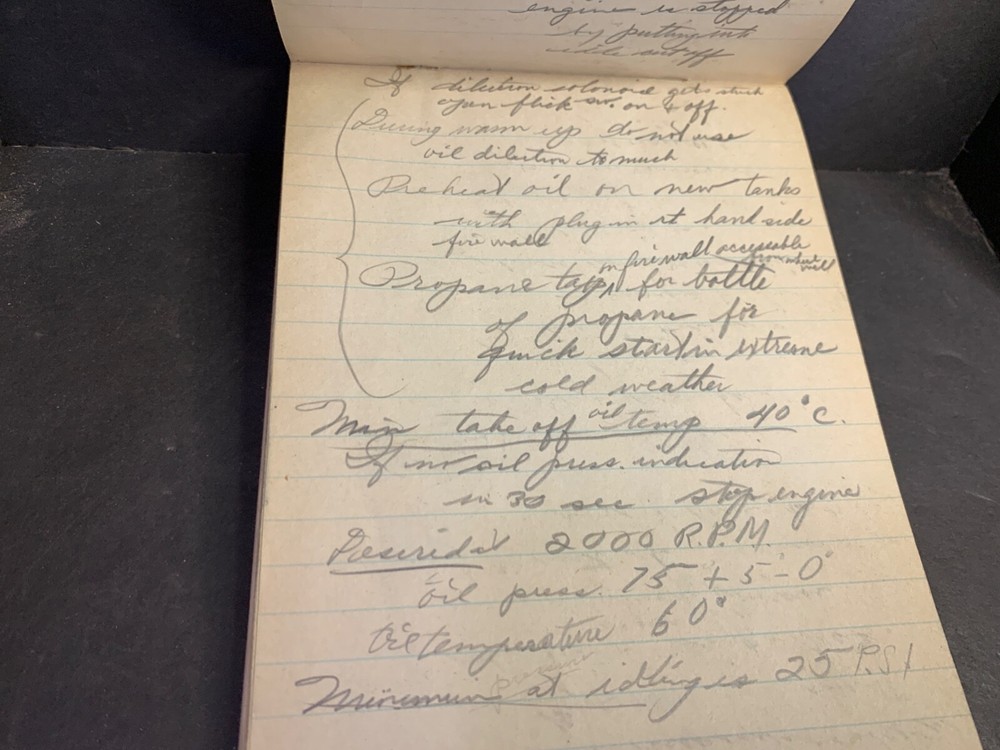 engine is stopped
by putting into
idle cutoff
If dilution solonoid gets stuck
open flick sw. on & off.
During warm up do not use
oil dilution to much
Preheat oil on new tanks
with plug in rt hand side
fire wall
on fire wall accessable
from wheel well
Propane tap for bottle
of propane for
quick start in extreme
cold weather
Min take off oil temp 40°C.
If no oil press. indication
in 30 sec stop engine
Desired at 2000 R.P.M.
oil press. 75 + 5 - 0
Oil temperature 60°
Minimum at idling is 25 P.S.I